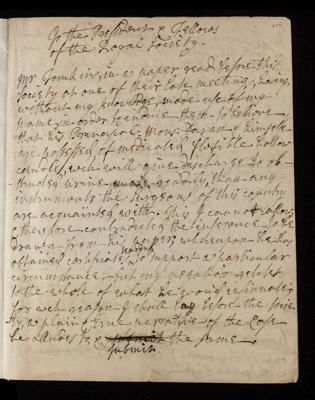 To the President & Fellows
of the Royal Society.
Mr Tomkins, in a paper read before this
Society at one of their late meetings, having
without my knowledge, made use of my
name in order to induce them to believe
that his Principal Monsr Daran & himself
are possessed of medicated flexible hollow
candles, wch will give discharge to ob-
structed urine more readily, than any
instruments the Surgeons of this country
are acquainted with. This I cannot allow,
therefore contradicted the inference to be
drawn from his paper; whereupon he has
obtained certificates to support a particular
circumstance; but my negation relates
to the whole of what he would insinuate;
for wch reason I shall lay before the socie-
ty, a plain & true narrative of the Case
he alludes to, & submit the same.
submit